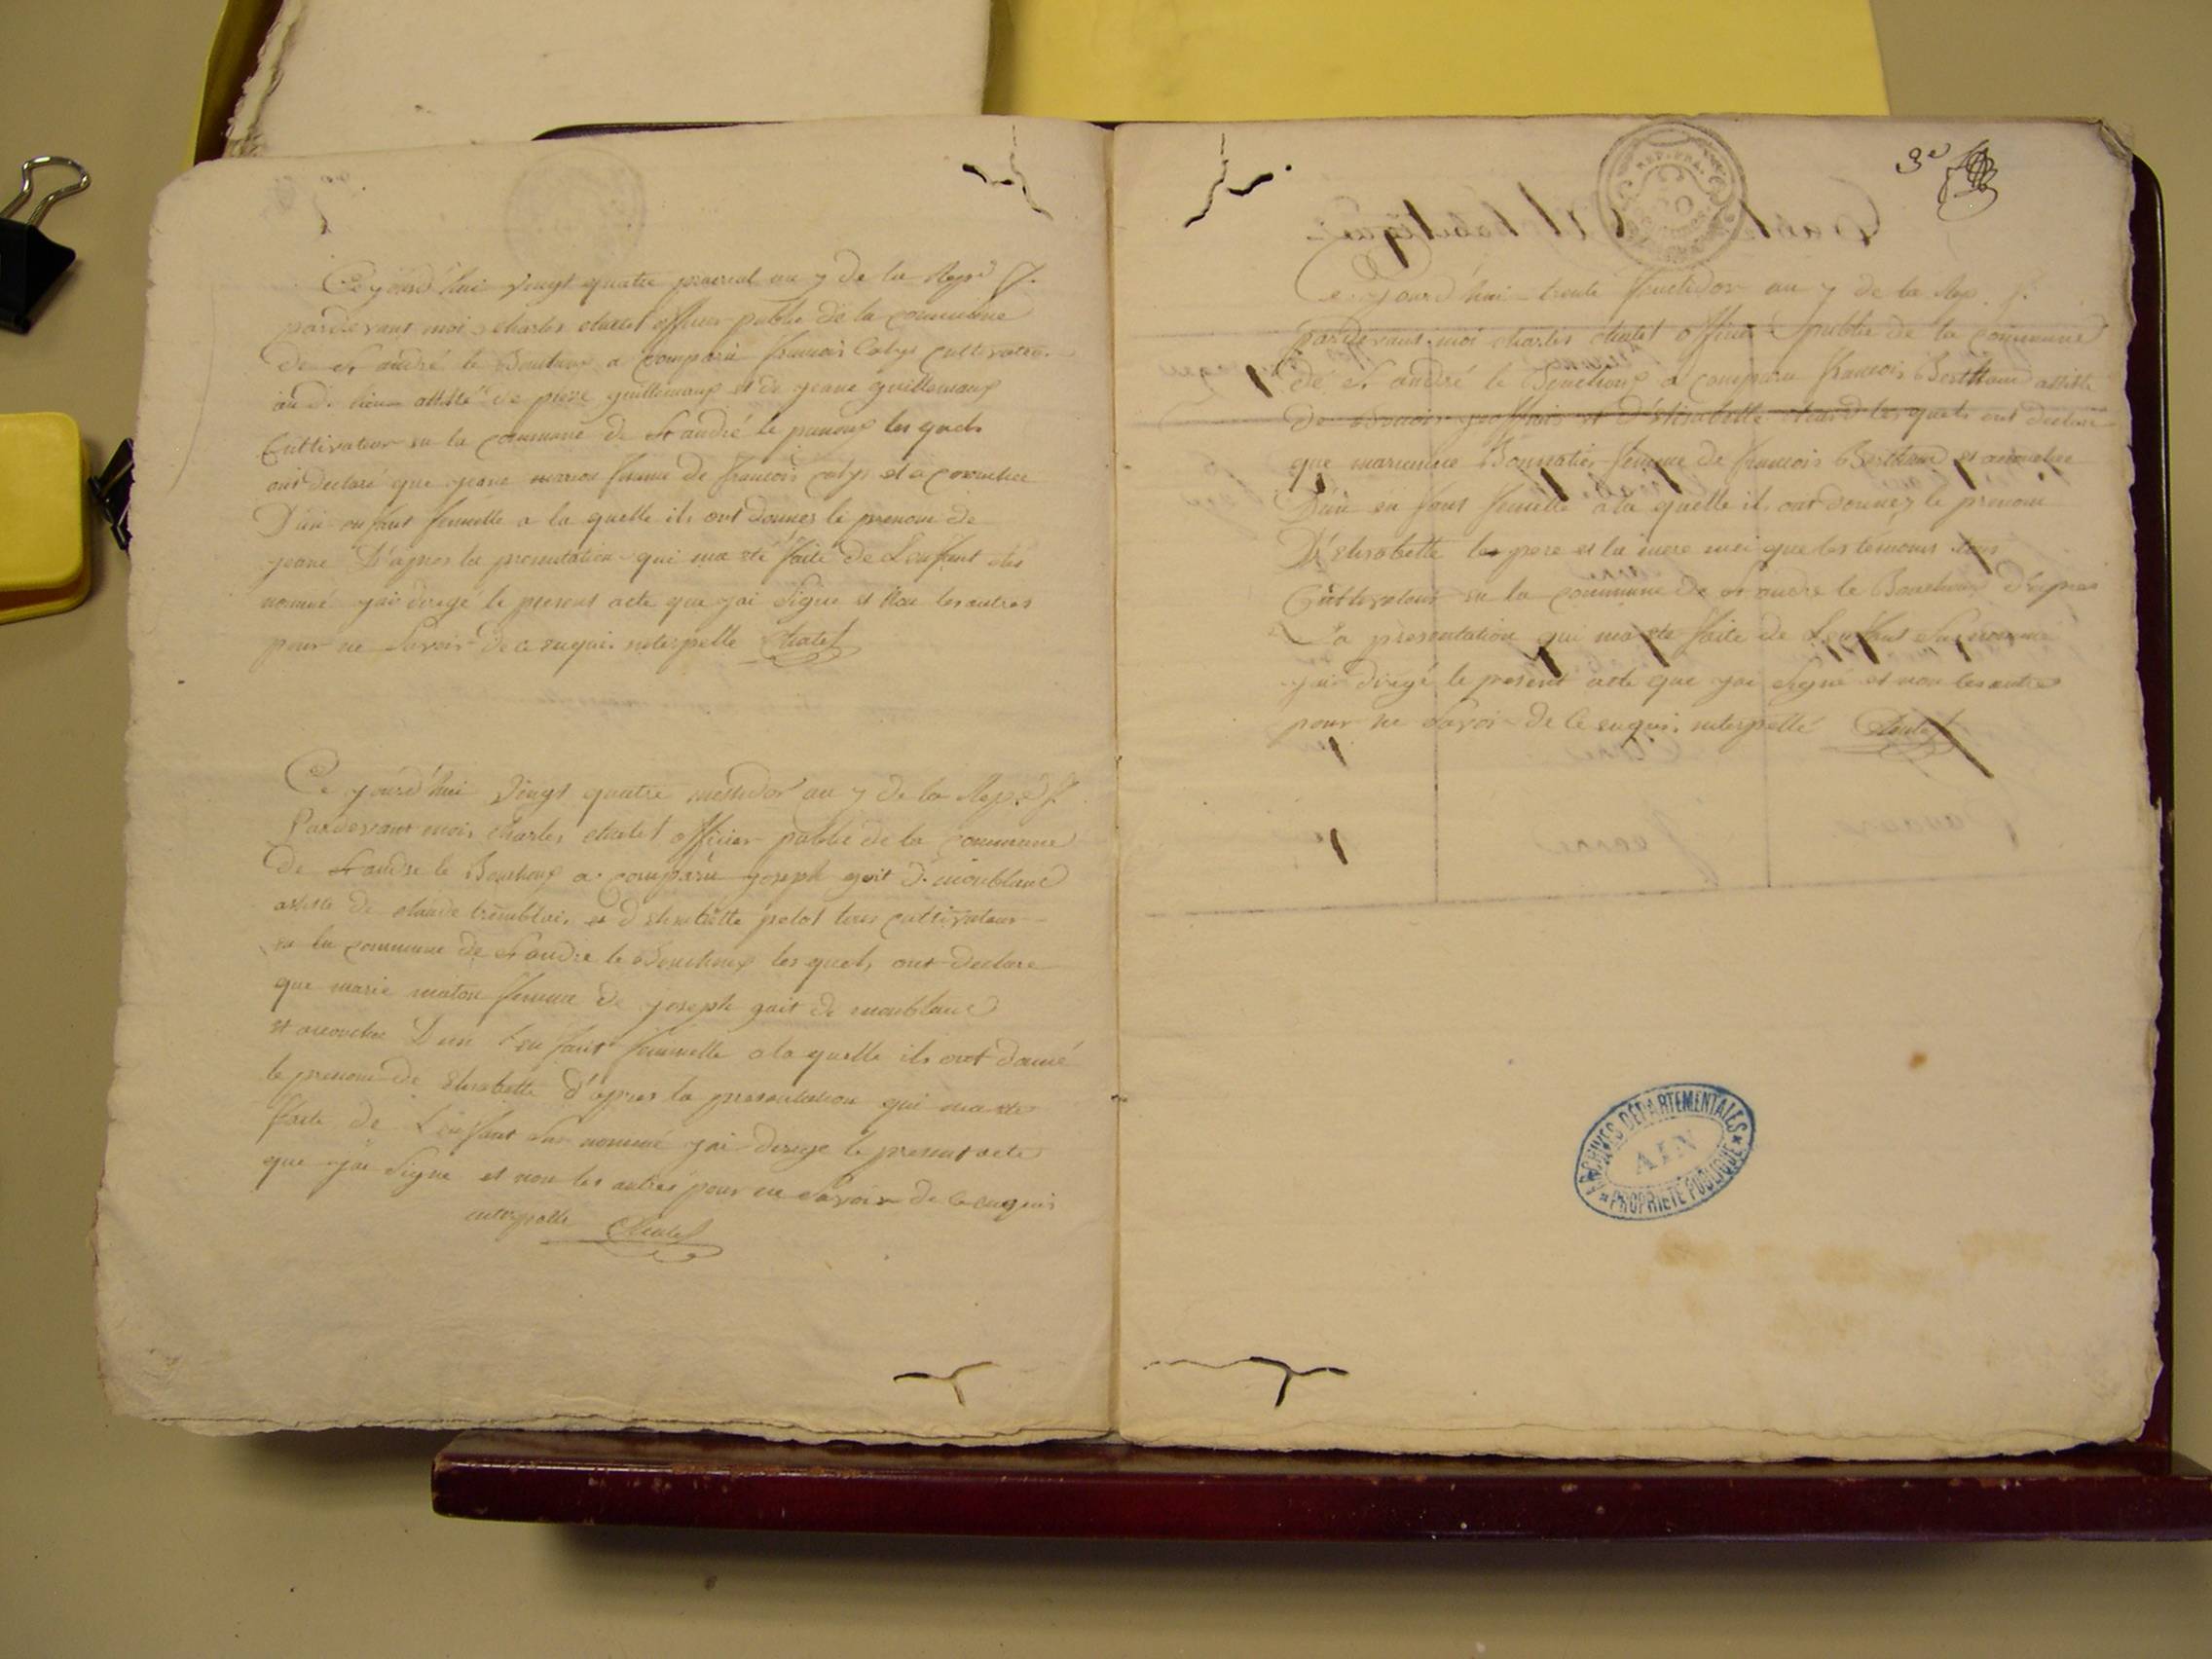 Ce jourd'hui vingt quatre prairial an 7 de la Rep.
pardevant moi charles chatel officier public de la commune
de st andré le Bouchoux a comparu francois Calys cultivateur
au d. lieu assisté de piere guillemaux et de jeane guillemaux
Cultivateur en la commune de st andré le panoux les quels
ont declaré que jeane femme de francois calys et acouchee
D'un enfant femelle a la quelle ils ont donnes le prenom de
jeane D'apres la presentation qui ma ete faite de L'enfant
nommé jai dirigé le present acte que jai Signe et Non les autres
pour ne Savoir de ce enquis interpelle Chatel
Ce jourd'hui Vingt quatre messidor an 7 de la Rep.
Pardevant moi charles chatel officier public de la commune
de st andre le Bouchoux a comparu joseph goit d. monblanc
assiste de claude tremblai, et d'elisabette pelot tous cultivateur
en la commune de st andre le Bouchoux les quels ont declare
que marie maton femme de joseph goit de monblanc
et acouchee D'un enfant femmelle a la quelle ils ont donné
le prenom de Elisabette d'apres la presentation qui ma ete
faite de L'enfant Sus nommé jai dirige le present acte
que jai Signe et non les autres pour ne Savoir de ce enquis
interpelle Chatel
3e
REP. FRA.
Ce jourd'hui trente fructidor an 7 de la Rep. f.
pardevant moi charles chatel officier public de la commune
de st andré le Bouchoux a comparu francois Berthaud assiste
de et d'Elisabette les quels ont declaré
que mariemie Bonnatier femme de francois Berthaud et acouchee
D'un en fant femelle a la quelle ils ont donnez le prenom
D'Elisabette le pere et la mere insi que les temoins tous
Cultivateur en la commune de st andre le Bouchoux D'apres
La presentation qui ma ete faite de L'enfant Sus nommé
jai dirigé le present acte que jai Signe et non les autres
pour ne Savoir de Ce enquis interpellé Chatel
ARCHIVES DÉPARTEMENTALES
AIN
PROPRIÉTÉ PUBLIQUE